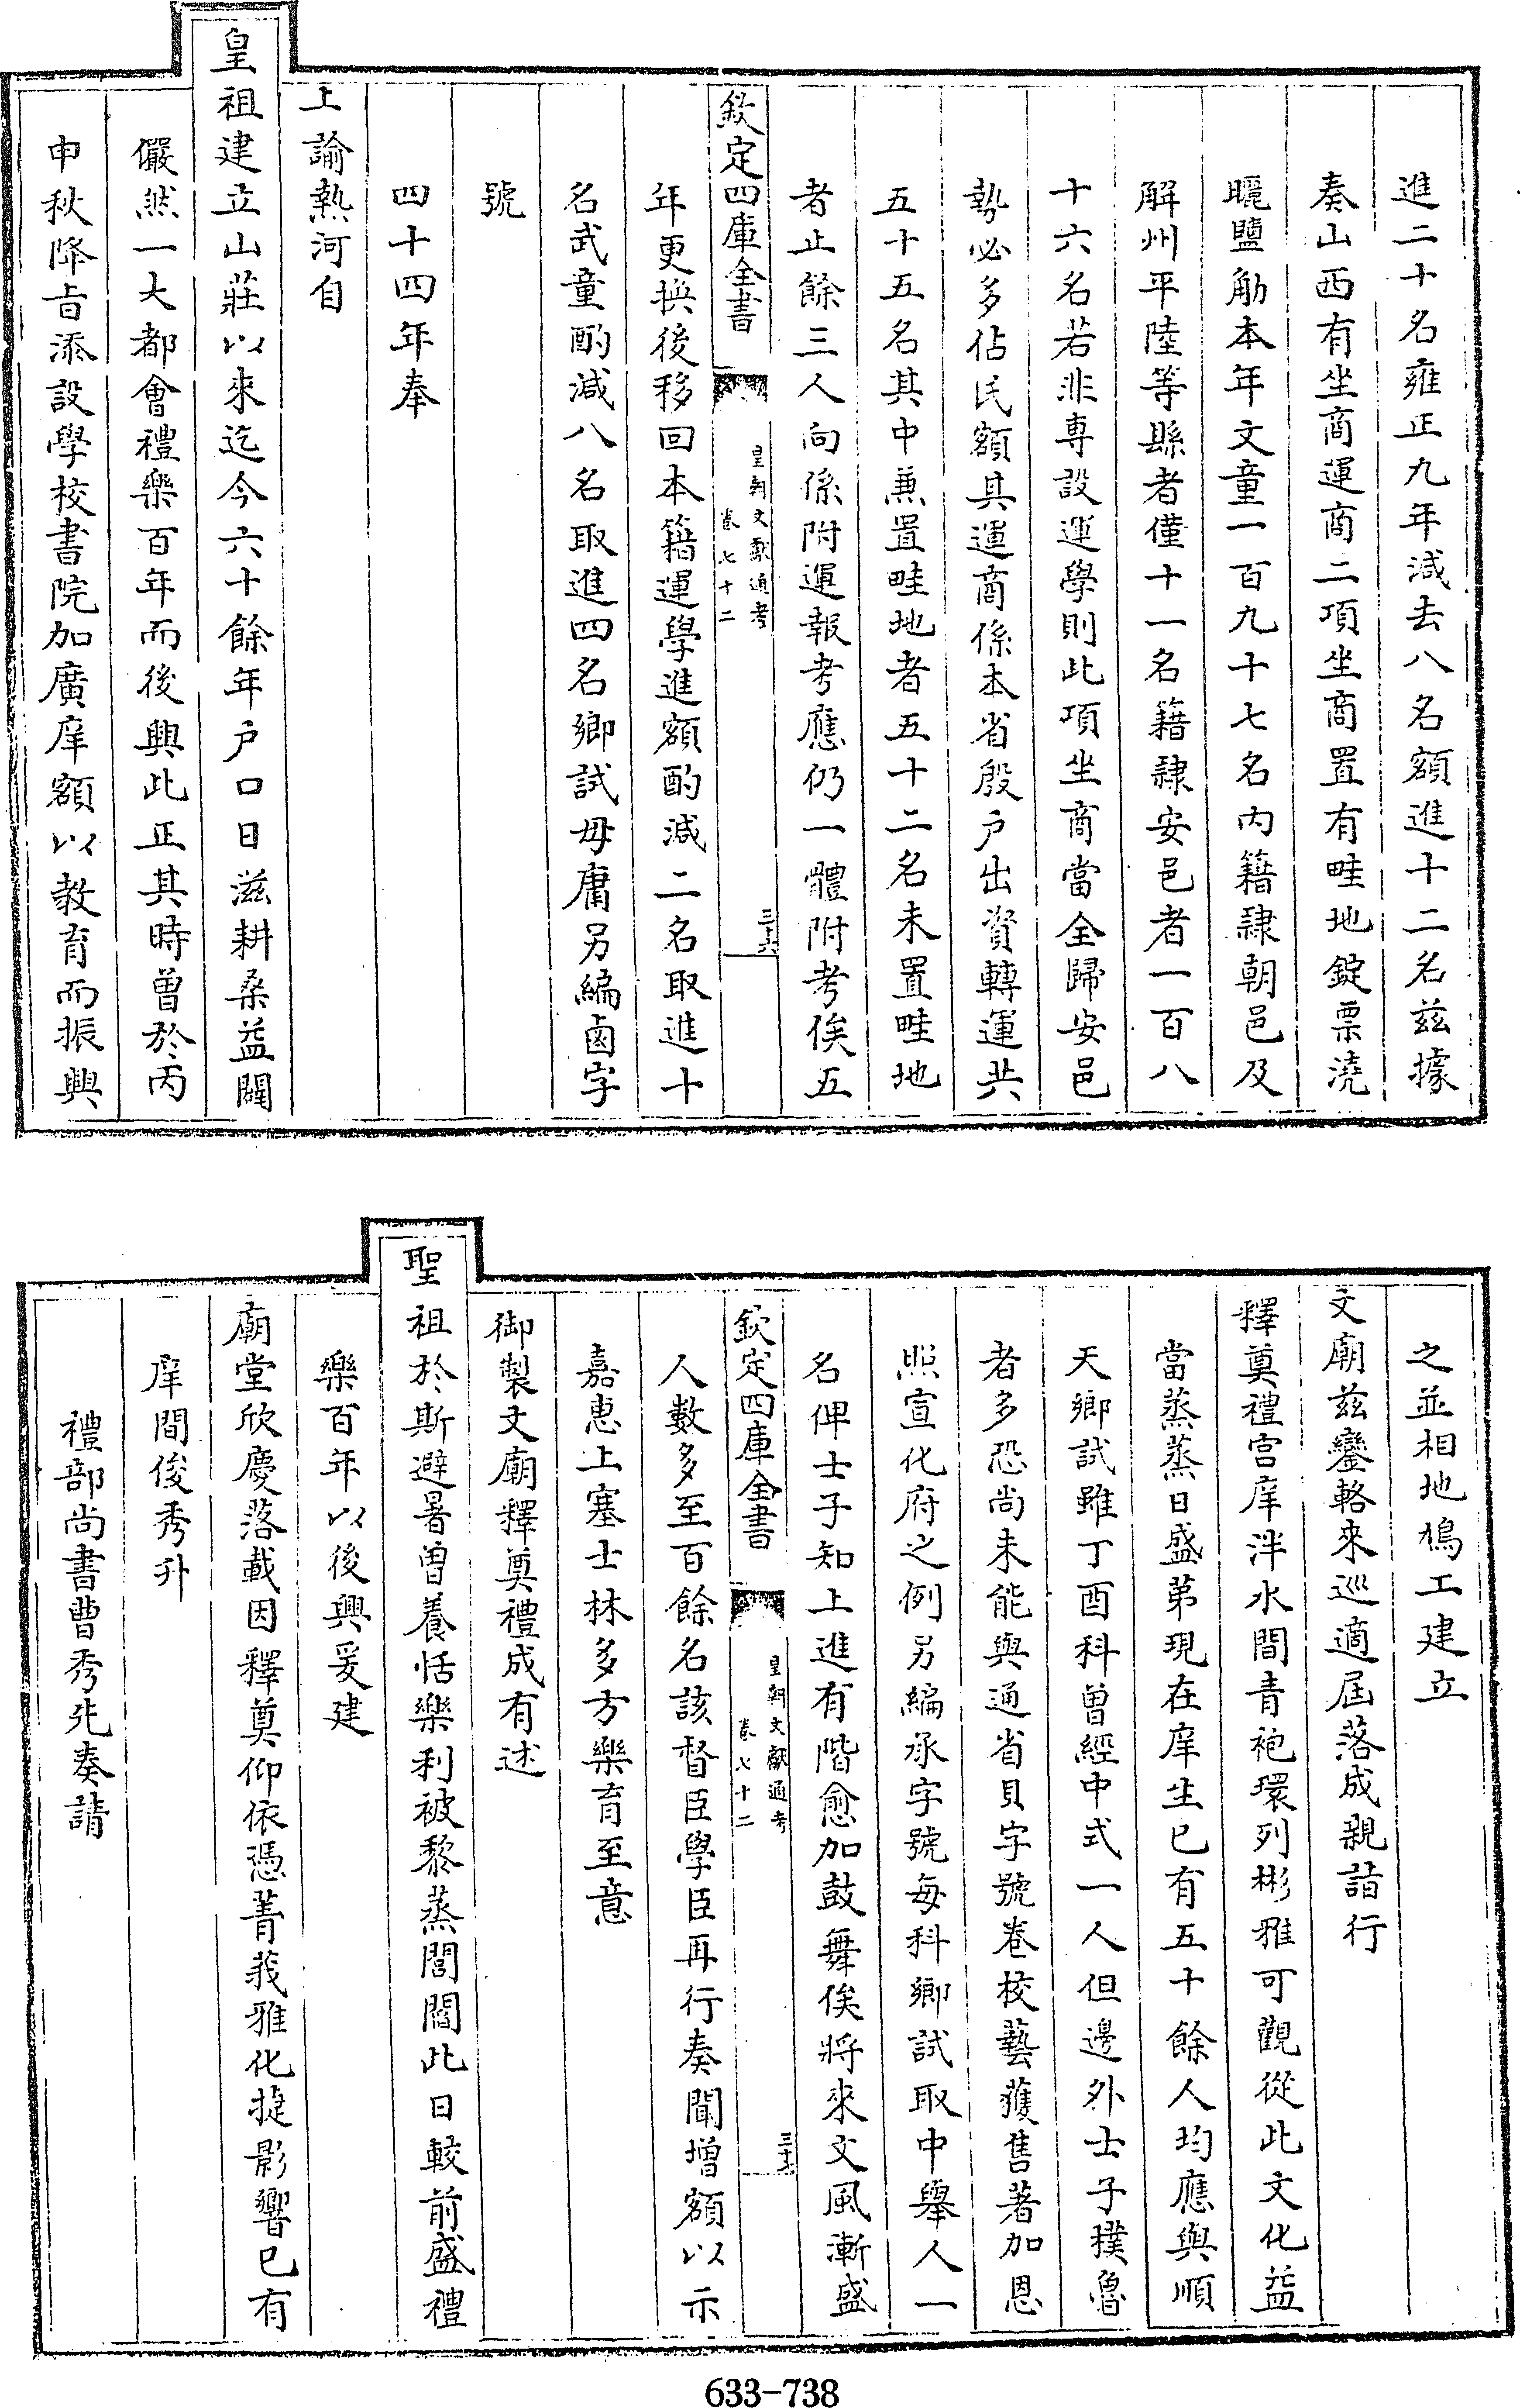 進二十名雍正九年減去八名額進十二名兹據
奏山西有坐商運商二項坐商置有畦地錠票澆
曬鹽觔本年文童一百九十七名内籍隸朝邑及
解州平陸等縣者僅十一名籍隸安邑者一百八
十六名若非専設運學則此項坐商當全歸安邑
勢必多佔民額其運商係本省殷户出資轉運共
五十五名其中兼置畦地者五十二名未置畦地
者止餘三人向係附運報考應仍一體附考俟五
欽定四庫全書
皇朝文獻通考
卷七十二
三十六
年更換後移回本籍運學進額酌減二名取進十
名武童酌減八名取進四名鄉試毋庸另編鹵字
號
四十四年奉
上諭熱河自
皇祖建立山莊以來迄今六十餘年户口日滋耕桑益闢
儼然一大都會禮樂百年而後興此正其時曽於丙
申秋降㫖添設學校書院加廣庠額以教育而振興
之並相地鳩工建立
文廟兹鑾輅來巡適屆落成親詣行
釋奠禮宫庠泮水間青袍環列彬雅可觀從此文化益
當蒸蒸日盛第現在庠生已有五十餘人均應與順
天鄉試雖丁酉科曽經中式一人但邊外士子樸魯
者多恐尚未能與通省貝字號卷校藝獲售著加恩
照宣化府之例另編承字號每科鄉試取中舉人一
名俾士子知上進有階愈加鼓舞俟將來文風漸盛
欽定四庫全書
皇朝文獻通考
卷七十二
三十七
人數多至百餘名該督臣學臣再行奏聞增額以示
嘉惠上塞士林多方樂育至意
御製文廟釋奠禮成有述
聖祖於斯避暑曽養恬樂利被黎蒸閭閻此日較前盛禮
樂百年以後興爰建
廟堂欣慶落載因釋奠仰依憑菁莪雅化捷影響已有
庠間俊秀升
禮部尚書曹秀先奏請
633-738